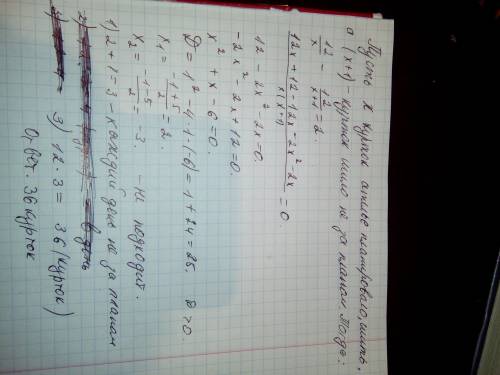 Пусть x курток ателье планировало шить,
а (x+1) - курток шило не за планом. Тогда:
12/x - 12/(x+1) = 2.
(12x + 12 - 12x - 2x² - 2x)/(x(x+1)) = 0.
12 - 2x² - 2x = 0.
-2x² - 2x + 12 = 0.
x² + x - 6 = 0.
D = 1² - 4·1·(-6) = 1 + 24 = 25, D > 0.
x₁ = (-1+5)/2 = 2.
x₂ = (-1-5)/2 = -3. - не подходит.
1) 2 + 1 = 3 - каждый день не за планом
2) в день
3) 12 · 3 = 36 (курток)
Ответ. 36 курток